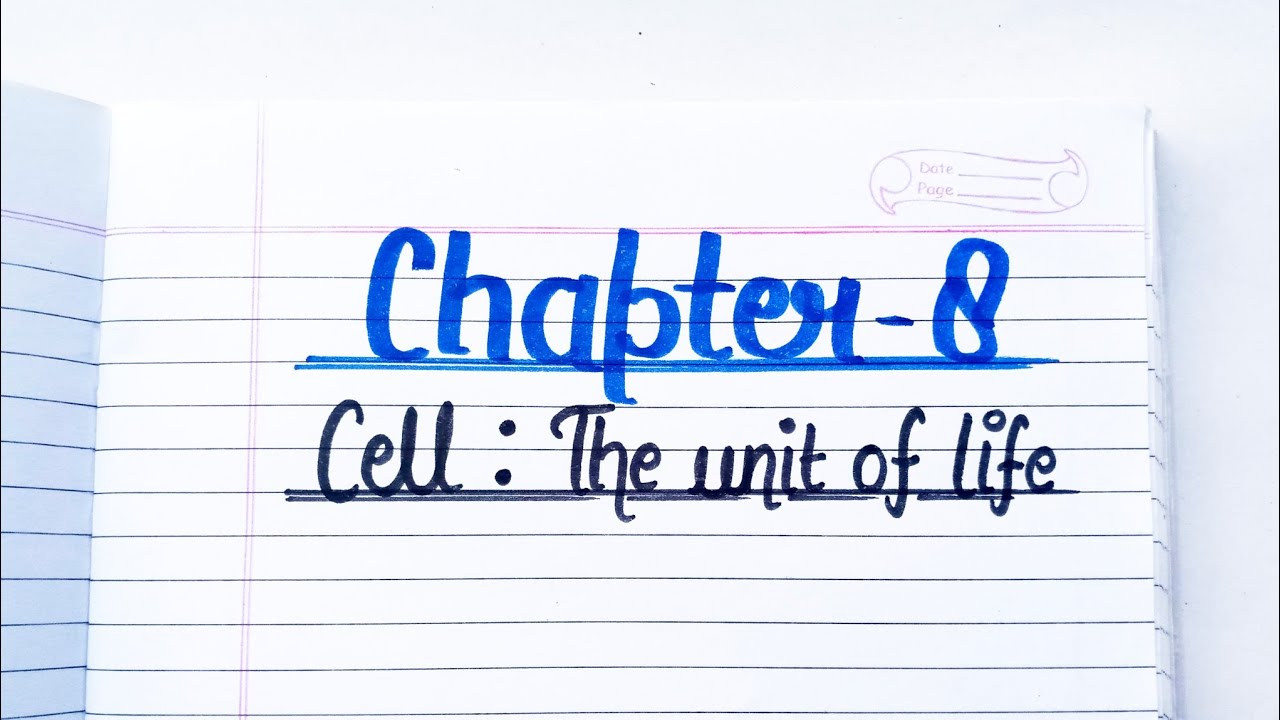 Date
Page
Chapter-8
Cell : The unit of life